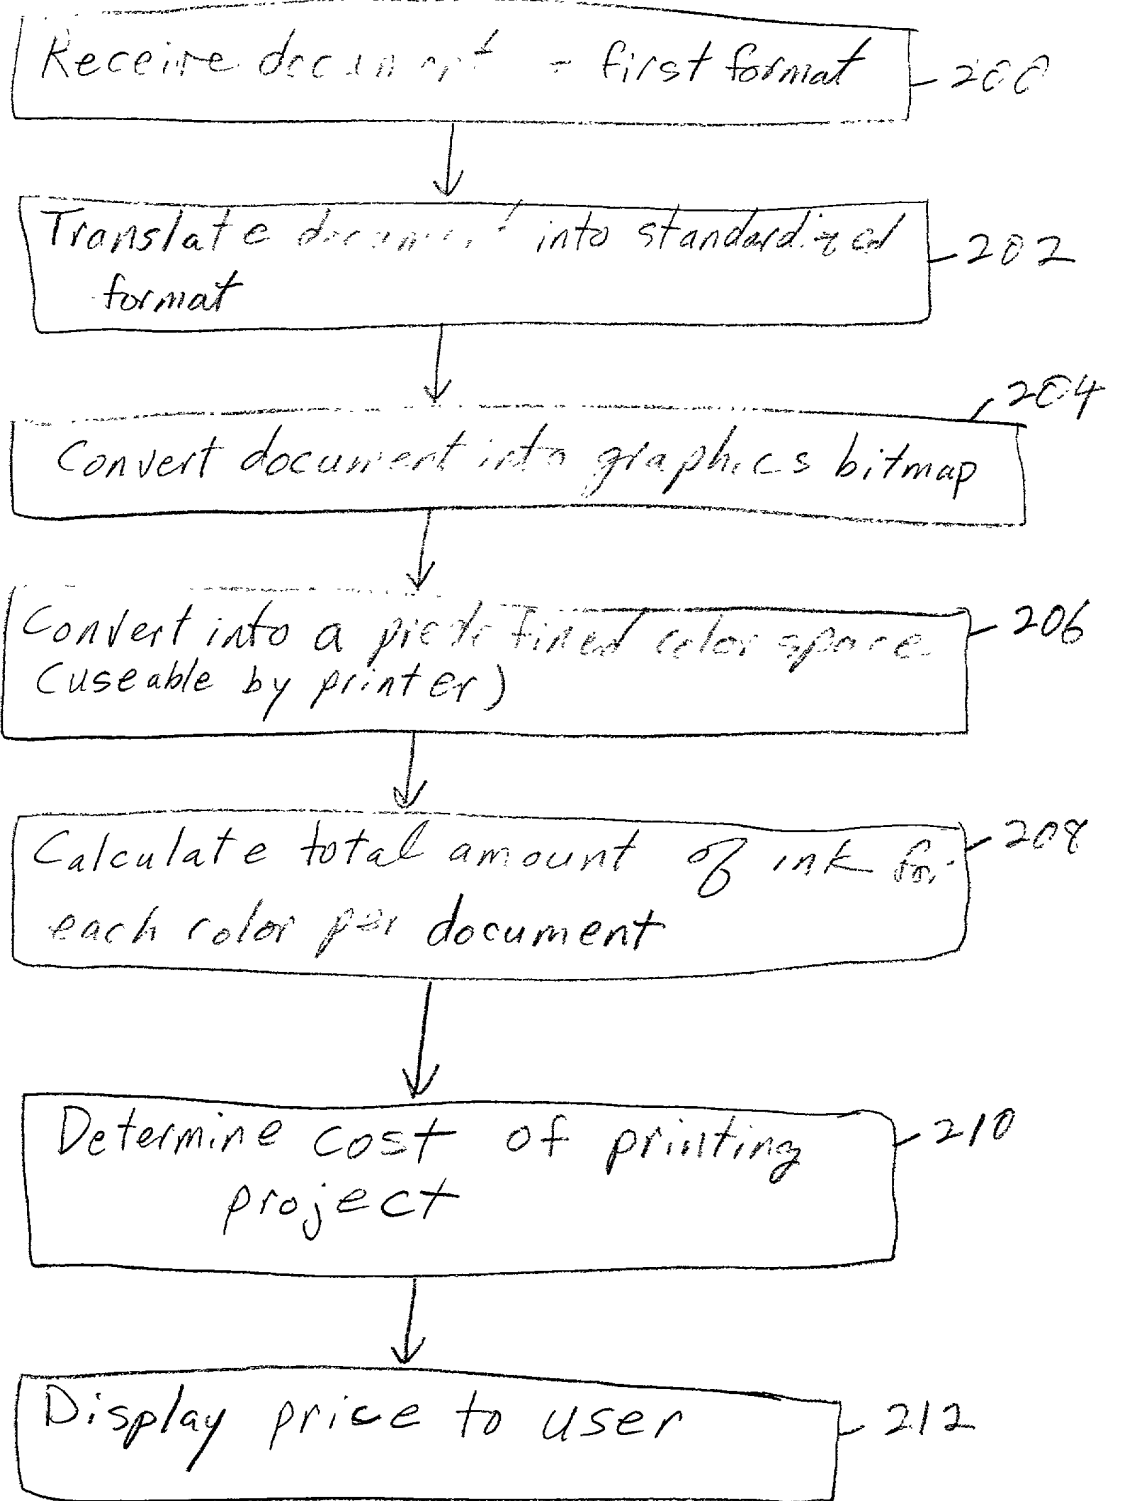 Receive document - first format
200
Translate document into standardized
format
202
204
Convert document into graphics bitmap
Convert into a predefined color space
(useable by printer)
206
Calculate total amount of ink for
each color per document
208
Determine cost of printing
project
210
Display price to user
212